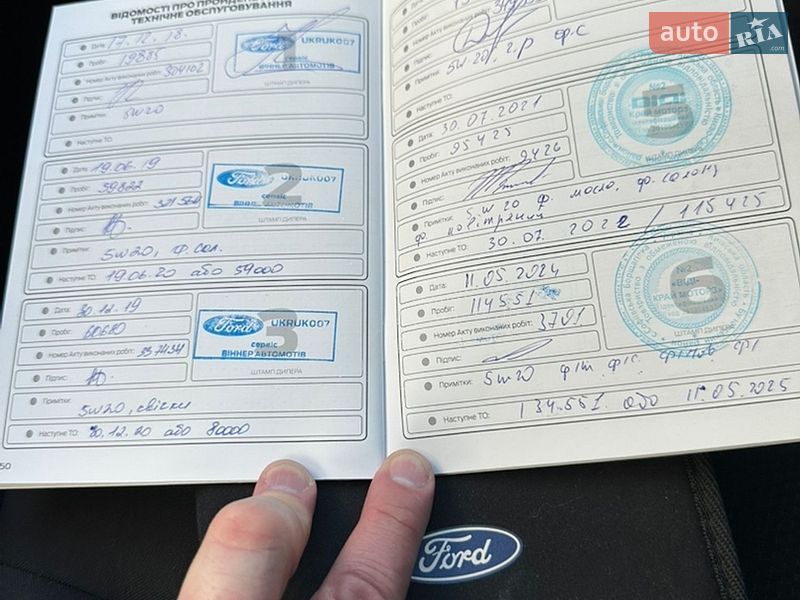 ВІДОМОСТІ ПРО ПРОЙДЕНЕ
ТЕХНІЧНЕ ОБСЛУГОВУВАННЯ
Дата: 17.12.18.
Пробіг: 19885
Номер Акту виконаних робіт: 304102
Підпис:
Примітки: 5w20
Наступне ТО:
1
Ford UKRUK007
сервіс
ВІННЕР АВТОМОТІВ
ШТАМП ДИЛЕРА
Дата: 19.06.19
Пробіг: 39822
Номер Акту виконаних робіт:
Підпис:
Примітки: 5w20, ф. сал.
Наступне ТО: 19.06.20 або 59000
2
Ford UKRUK007
сервіс
ВІННЕР АВТОМОТІВ
ШТАМП ДИЛЕРА
Дата: 30.12.19
Пробіг: 60680
Номер Акту виконаних робіт: 357434
Підпис:
Примітки:
5w20, свічки
Наступне ТО: 30.12.20 або 80000
3
Ford UKRUK007
сервіс
ВІННЕР АВТОМОТІВ
ШТАМП ДИЛЕРА
50
Номер Акту виконаних робіт:
Підпис:
Примітки: 5w20, г.р ф.с
Наступне ТО:
Дата: 30.07.2021
Пробіг: 95425
Номер Акту виконаних робіт: 9426
Підпис:
Примітки: 5w20 ф. масло, ф. салону
ф. повітряний
Наступне ТО: 30.07.2022 / 115425
5
№2
КРАЙ МОТОРЗ
Дата: 11.05.2024
Пробіг: 114551
Номер Акту виконаних робіт: 3791
Підпис:
Примітки: 5w20
Наступне ТО: 134.551 або 11.05.2025
6
№2
КРАЙ МОТОРЗ
ШТАМП ДИЛЕРА
Ford
auto RIA
.com